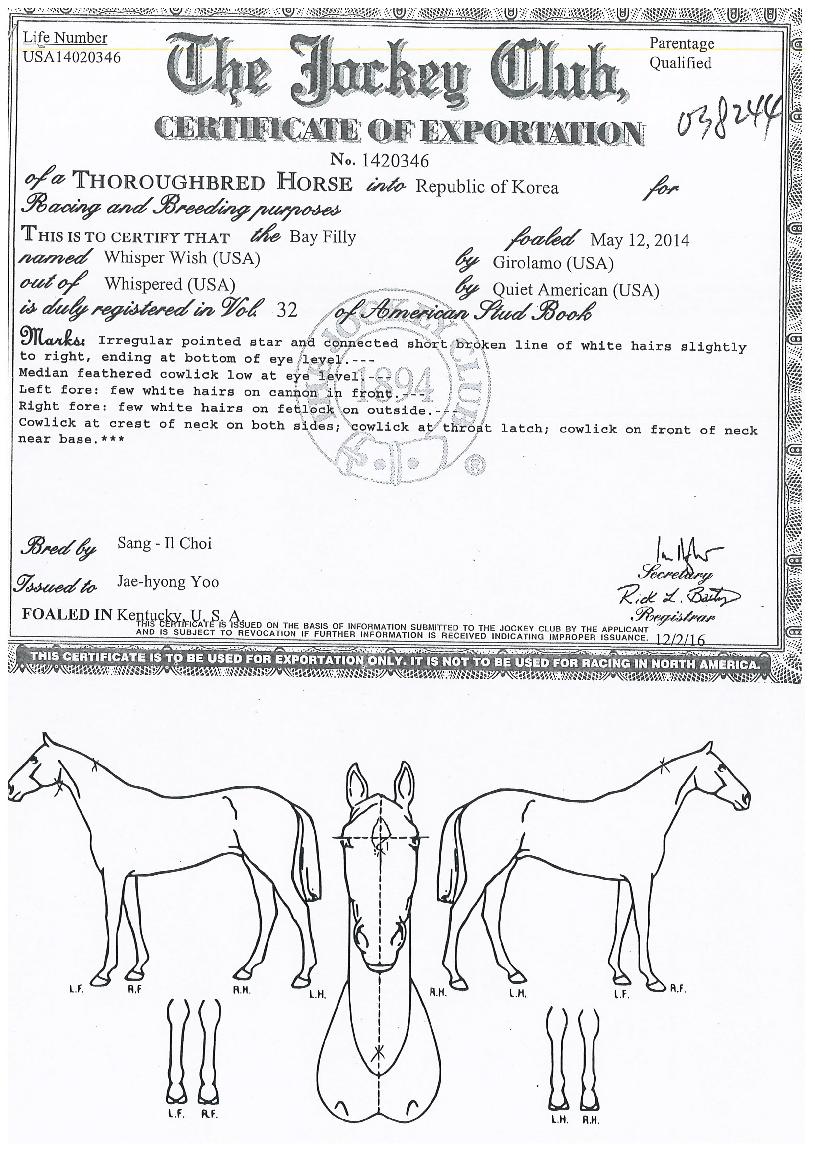 Life Number
USA14020346
Parentage
Qualified
The Jockey Club,
038244
CERTIFICATE OF EXPORTATION
No. 1420346
of a THOROUGHBRED HORSE into Republic of Korea for
Racing and Breeding purposes
THIS IS TO CERTIFY THAT the Bay Filly foaled May 12, 2014
named Whisper Wish (USA) by Girolamo (USA)
out of Whispered (USA) by Quiet American (USA)
is duly registered in Vol. 32 of American Stud Book
Marks: Irregular pointed star and connected short broken line of white hairs slightly
to right, ending at bottom of eye level.---
Median feathered cowlick low at eye level.---
Left fore: few white hairs on cannon in front.---
Right fore: few white hairs on fetlock on outside.---
Cowlick at crest of neck on both sides; cowlick at throat latch; cowlick on front of neck
near base.***
THE JOCKEY CLUB
1894
®
Bred by Sang - Il Choi
Issued to Jae-hyong Yoo
Secretary
Rick L. Bailey
Registrar
FOALED IN Kentucky, U. S. A.
THIS CERTIFICATE IS ISSUED ON THE BASIS OF INFORMATION SUBMITTED TO THE JOCKEY CLUB BY THE APPLICANT
AND IS SUBJECT TO REVOCATION IF FURTHER INFORMATION IS RECEIVED INDICATING IMPROPER ISSUANCE. 12/2/16
THIS CERTIFICATE IS TO BE USED FOR EXPORTATION ONLY. IT IS NOT TO BE USED FOR RACING IN NORTH AMERICA.
L.F. R.F. R.H. L.H. R.H. L.H. L.F. R.F.
L.F. R.F. L.H. R.H.